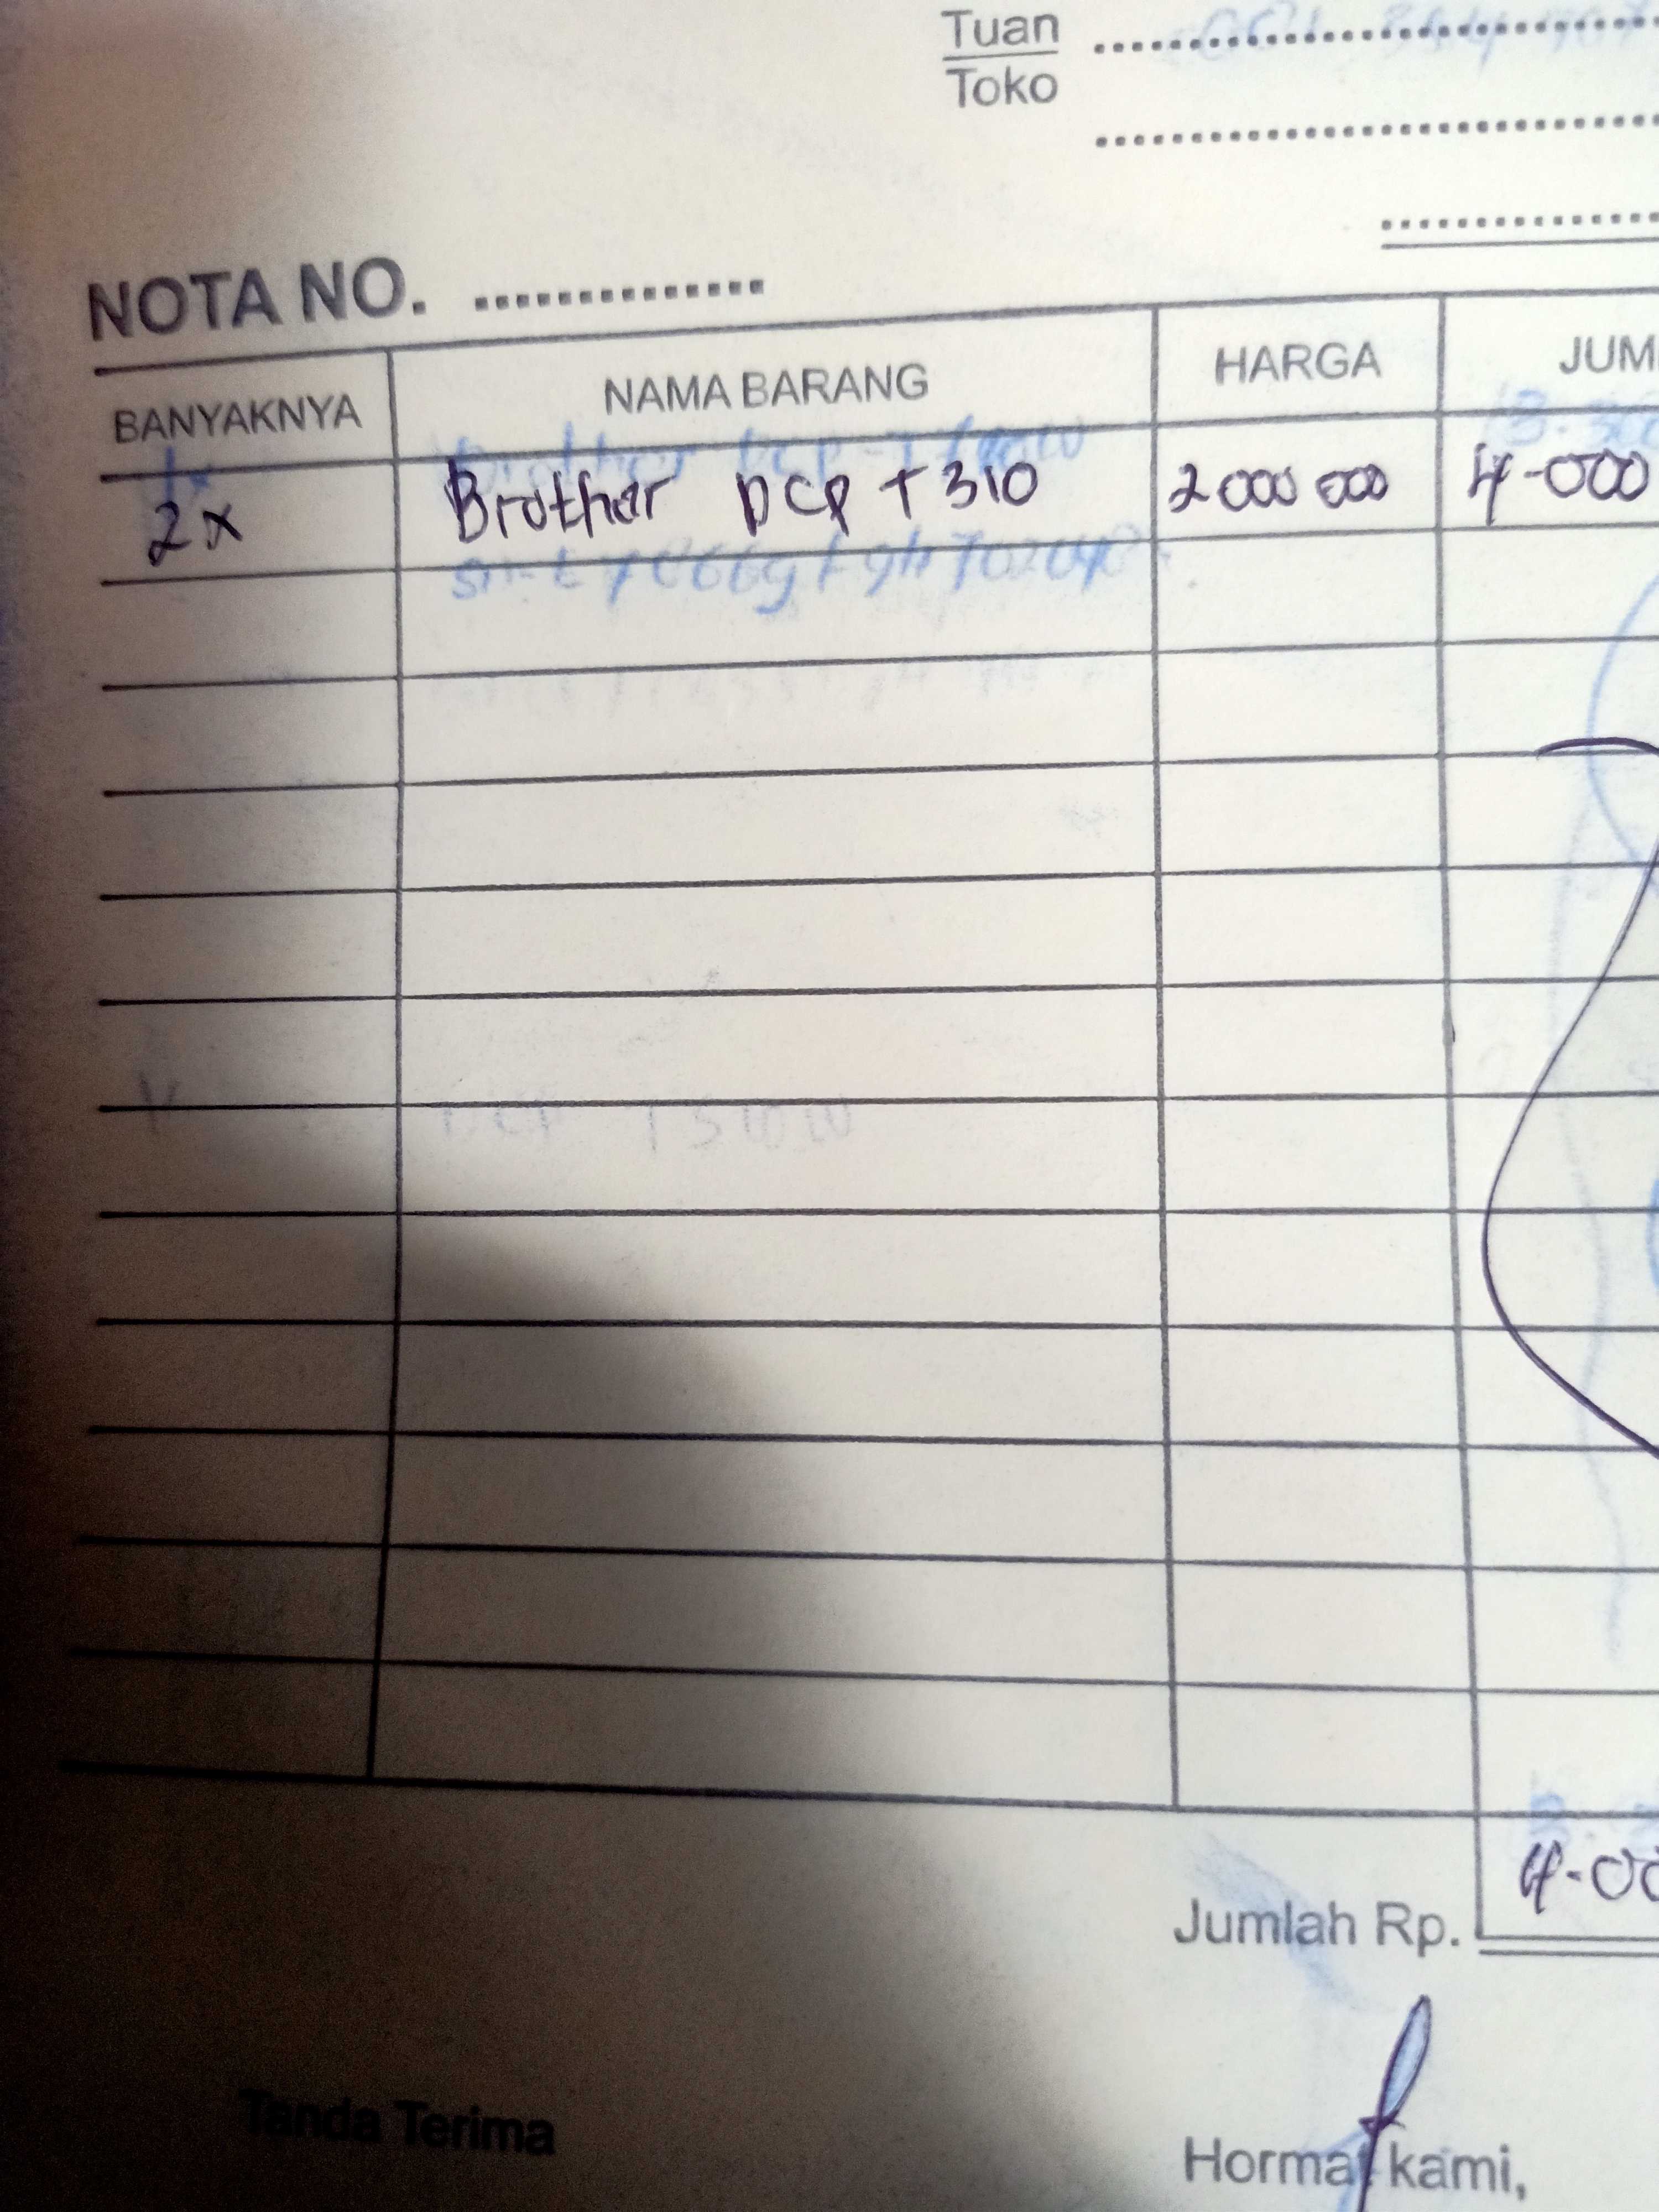 Tuan
Toko
NOTA NO. ..............
BANYAKNYA NAMA BARANG HARGA JUM
2x Brother DCP T 310 2000 000 4-000
Jumlah Rp. 4-00
Tanda Terima Hormat kami,